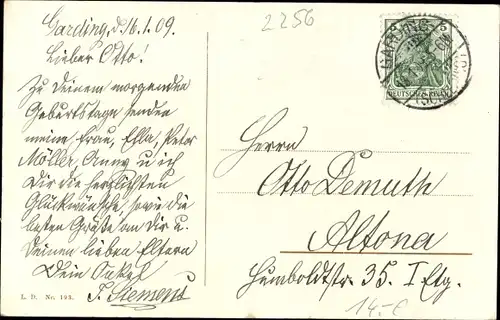 Garding, d. 16.1.09.
Lieber Otto!
Zu Deinem morgenden
Geburtstage senden
meine Frau, Ella, Peter
Möller, Anny u ich
Dir die herzlichsten
Glückwünsche, sowie die
besten Grüße an Dir u.
Deinen lieben Eltern
Dein Onkel
L. D. Nr. 193.
2256
DEUTSCHES REICH
GARDING
Herrn
Otto Demuth
Altona
Humboldtstr. 35. I Etg.
14.-€